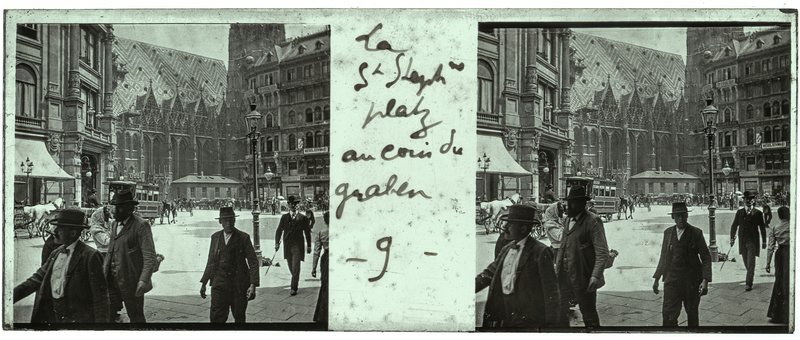 La
St Stephns
platz
au coin du
graben
- 9 -